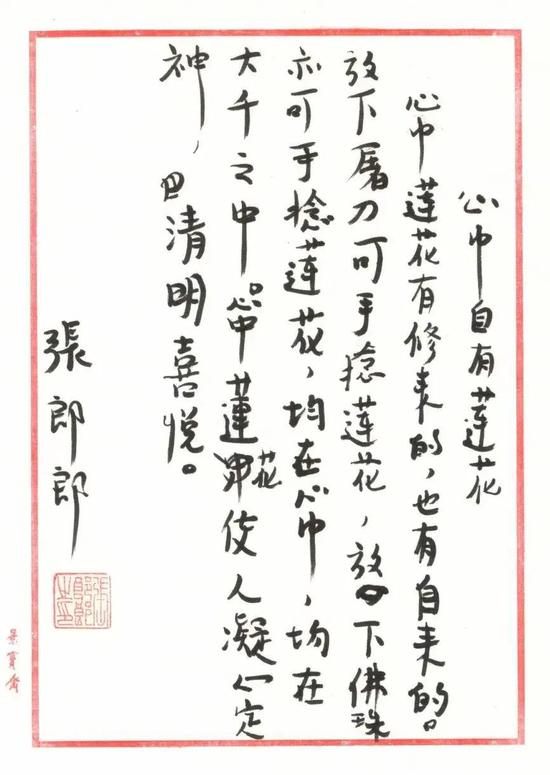 心中自有莲花
心中莲花有修来的，也有自来的。
放下屠刀可手捻莲花，放下佛珠
亦可手捻莲花，均在心中，均在
大千之中。心中莲花使人凝心定
神，清明喜悦。
張郎郎
張郎郎之印